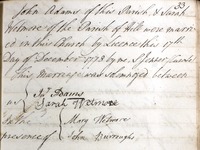 33
John Adams of this Parish & Sarah
Wetmore of the Parish of Holt were married
in this Church by Licence this 17th
Day of December 1773 by me
This Marriage was solemnized between
us { Jn. Adams
Sarah Wetmore
In the
presence of { Mary Wetmore
John Burroughs